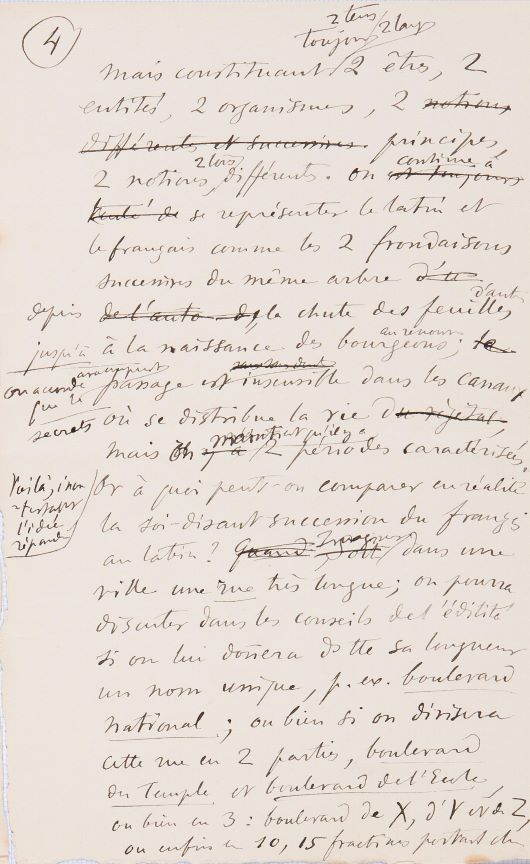 4
2 tens
toujours 2 lang
mais constituant 2 êtres, 2
entités, 2 organismes, 2 notions
différentes et successives. principes,
2 lois
2 notions, différents. on est toujours
continue à
tenté de se représenter le latin et
le français comme les 2 frondaisons
successives du même arbre d'u
depuis de l'auto la chute des feuilles
d'aut.
jusqu'à à la naissance des bourgeons; le
au renouv
on accorde
que ce passage est insensible dans les canaux
secrets où se distribue la vie du végétal,
mais on y a 2 périodes caractérisées.
maintient qu'il y a
Voilà, sinon
l'idée
répand
Or à quoi peut-on comparer en réalité
la soi-disant succession du français
au latin? Quand soit dans une
Imaginons
ville une rue très longue; on pourra
discuter dans les conseils de l'édilité
si on lui donnera dstte sa longueur
un nom unique, p. ex. boulevard
national; ou bien si on divisera
cette rue en 2 parties, boulevard
du Temple et boulevard de l'Ecole,
ou bien en 3: boulevard de X, d'Y et de Z,
ou enfin en 10, 15 fractions portant ch